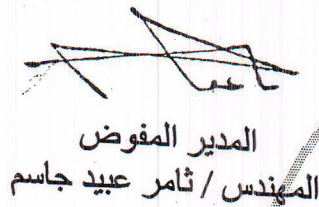 المدير المفوض
المهندس / ثامر عبيد جاسم